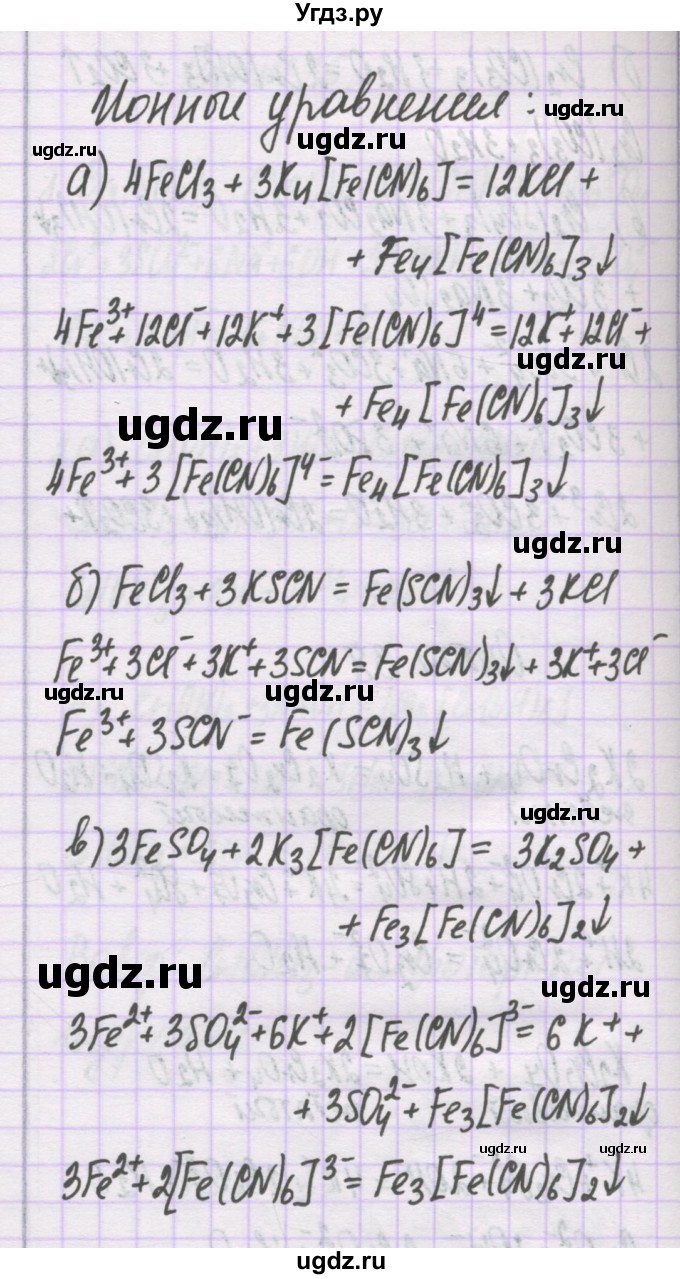 Угдз.ру
Ионные уравнения:
ugdz.ru
ugdz.ru
а) 4FeCl₃ + 3K₄[Fe(CN)₆] = 12KCl +
ugdz.ru
+ Fe₄[Fe(CN)₆]₃↓
4Fe³⁺ + 12Cl⁻ + 12K⁺ + 3[Fe(CN)₆]⁴⁻ = 12K⁺ + 12Cl⁻ +
ugdz.ru
+ Fe₄[Fe(CN)₆]₃↓
ugdz.ru
4Fe³⁺ + 3[Fe(CN)₆]⁴⁻ = Fe₄[Fe(CN)₆]₃↓
ugdz.ru
б) FeCl₃ + 3KSCN = Fe(SCN)₃↓ + 3KCl
Fe³⁺ + 3Cl⁻ + 3K⁺ + 3SCN = Fe(SCN)₃↓ + 3K⁺ + 3Cl⁻
ugdz.ru
ugdz.ru
Fe³⁺ + 3SCN⁻ = Fe(SCN)₃↓
ugdz.ru
в) 3FeSO₄ + 2K₃[Fe(CN)₆] = 3K₂SO₄ +
+ Fe₃[Fe(CN)₆]₂↓
ugdz.ru
ugdz.ru
3Fe²⁺ + 3SO₄²⁻ + 6K⁺ + 2[Fe(CN)₆]³⁻ = 6K⁺ +
+ 3SO₄²⁻ + Fe₃[Fe(CN)₆]₂↓
ugdz.ru
ugdz.ru
3Fe²⁺ + 2[Fe(CN)₆]³⁻ = Fe₃[Fe(CN)₆]₂↓
ugdz.ru